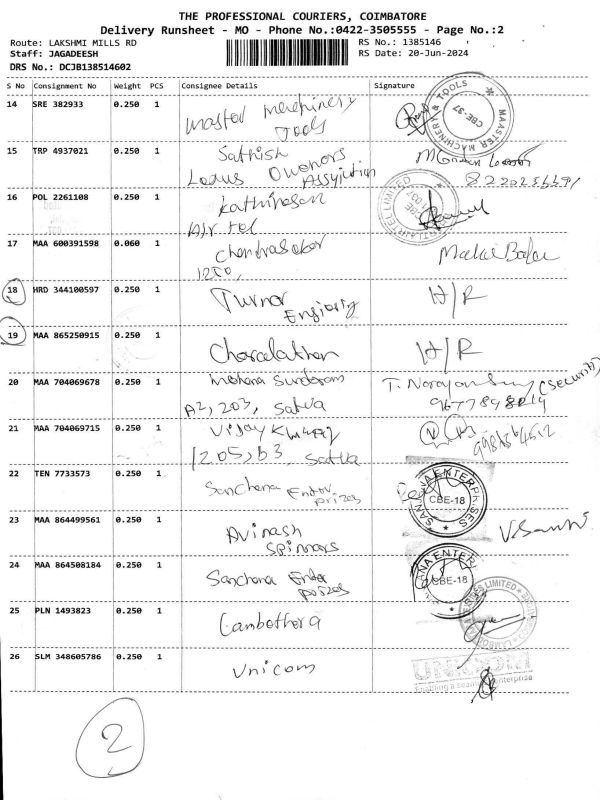 THE PROFESSIONAL COURIERS, COIMBATORE
Delivery Runsheet - MO - Phone No.:0422-3505555 - Page No.:2
Route: LAKSHMI MILLS RD
RS No.: 1385146
Staff: JAGADEESH
RS Date: 20-Jun-2024
DRS No.: DCJB138514602
S No Consignment No Weight PCS Consignee Details Signature
14 SRE 382933 0.250 1
Master Machinery
Tools
MAASTER MACHINERY & TOOLS
CBE-37
15 TRP 4937021 0.250 1
Sathish
16 POL 2261108 0.250 1
Kathiresan
Air tel
17 MAA 600391598 0.060 1
Chandrasekar
1250,
18 HRD 344100597 0.250 1
Turnor H/R
19 MAA 865250915 0.250 1
H/R
20 MAA 704069678 0.250 1
Mohana Sundaram
(Security)
A2, 203, Satva
21 MAA 704069715 0.250 1
Vijay Kumar
1205, B3, Satva
22 TEN 7733573 0.250 1
Sanchana Enter
prizes
CBE-18
23 MAA 864499561 0.250 1
Avinash
Spinnars
24 MAA 864508184 0.250 1
Sanchana Enter
prizes
CBE-18
25 PLN 1493823 0.250 1
Cambothra
26 SLM 348605786 0.250 1
Unicom
2